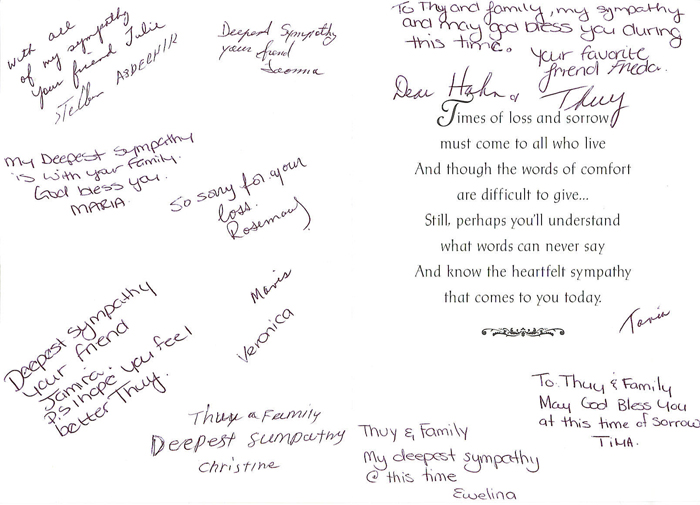 with all
of my sympathy
your friend Julie
Deepest Sympathy
your friend
My Deepest Sympathy
is with your Family.
God bless you.
MARIA
So sorry for your
loss.
Rosemary
Mavis
Veronica
Deepest Sympathy
your friend
Jamira.
P.s I hope you feel
better Thuy.
Thuy & Family
Deepest sumpathy
christine
To Thy and family, my sympathy
and may god bless you during
this time.
your favorite
friend Frieda.
Dear Hahn & Thuy
Times of loss and sorrow
must come to all who live
And though the words of comfort
are difficult to give...
Still, perhaps you'll understand
what words can never say
And know the heartfelt sympathy
that comes to you today.
Tania
To Thuy & Family
May God Bless You
at this time of sorrow
TINA.
Thuy & Family
My deepest sympathy
@ this time
Ewelina